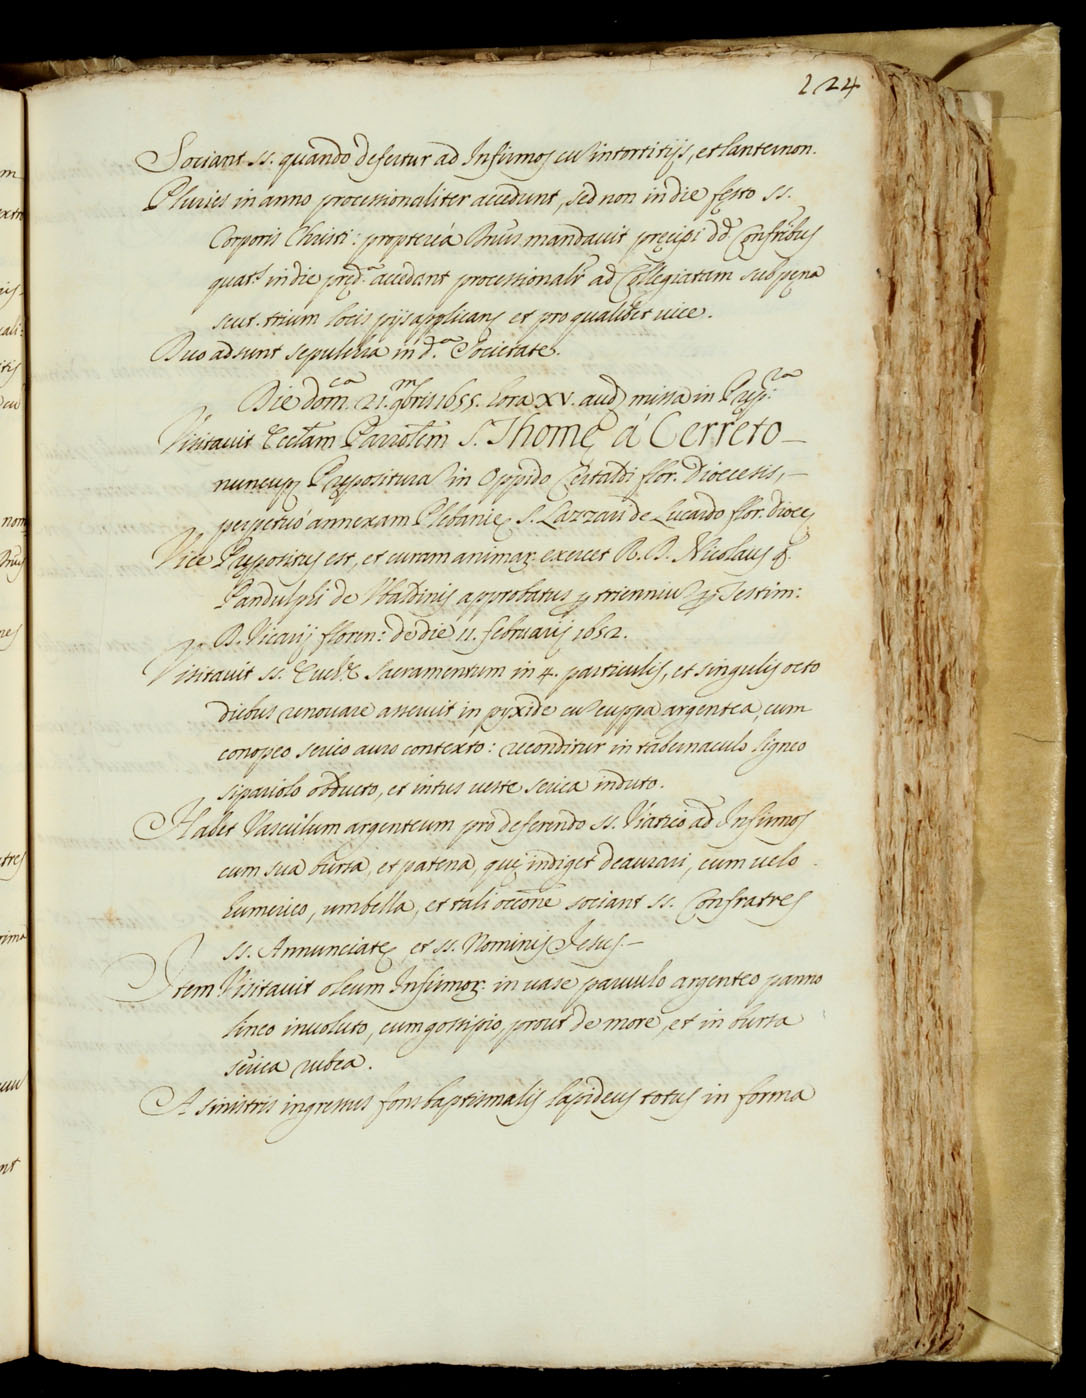 224
Sociant SS. quando defertur ad Infirmos cū intortitijs, et lanternon.
Pluries in anno processionaliter accedunt, sed non in die festo SS.
Corporis Christi: propterea Ill.mus mandavit pręcipi dd. Confrībus
quat.s in die pręd.a accedant processionalr ad Collegiatam sub pęna
scut. trium locis pijs applicanđ et pro qualibet vice.
Duo adsunt sepulcra in d.a Societate.
Die dom.ca 21. 9mbris 1655. hora XV. aud. missa in Prep.ra
Visitavit Eccl̄am Parrolēm S. Thomę á Cerreto —
nuncup. Prępositura in Oppido Certaldi flor. Dioecesis, —
perpetuó annexam Plebanię S. Lazzari de Lucardo flor. dioec.
Vice Prępositus est, et curam animar. exercet R. D. Nicolaus q.
Pandulphi de Maldinis approbatus p trienniū p Testim:
D. Vicarij floren: de die 11. februarij 1652.
Visitavit SS. Euch.æ Sacramentum in 4. particulis, et singulis octo
diebus renovare asseruit in pyxide cū cuppa argentea, cum
conopeo serico auro contexto: reconditur in tabernaculo ligneo
sipariolo obducto, et intus veste serica induto.
Habet Vasculum argenteum pro deferendo SS. Viatico ad Infirmos
cum sua bursa, et patena, quę indiget deaurari, cum velo
humerico, umbella, et tali occōne sociant SS. Confratres
SS. Annunciatę, et SS. Nominis Jesus. —
Item Visitavit oleum Infirmor. in vase parvulo argenteo panno
lineo involuto, cum gossipio, prout de more, et in bursa
serica rubea.
A sinistris ingressus fons baptismalis lapideus totus in forma